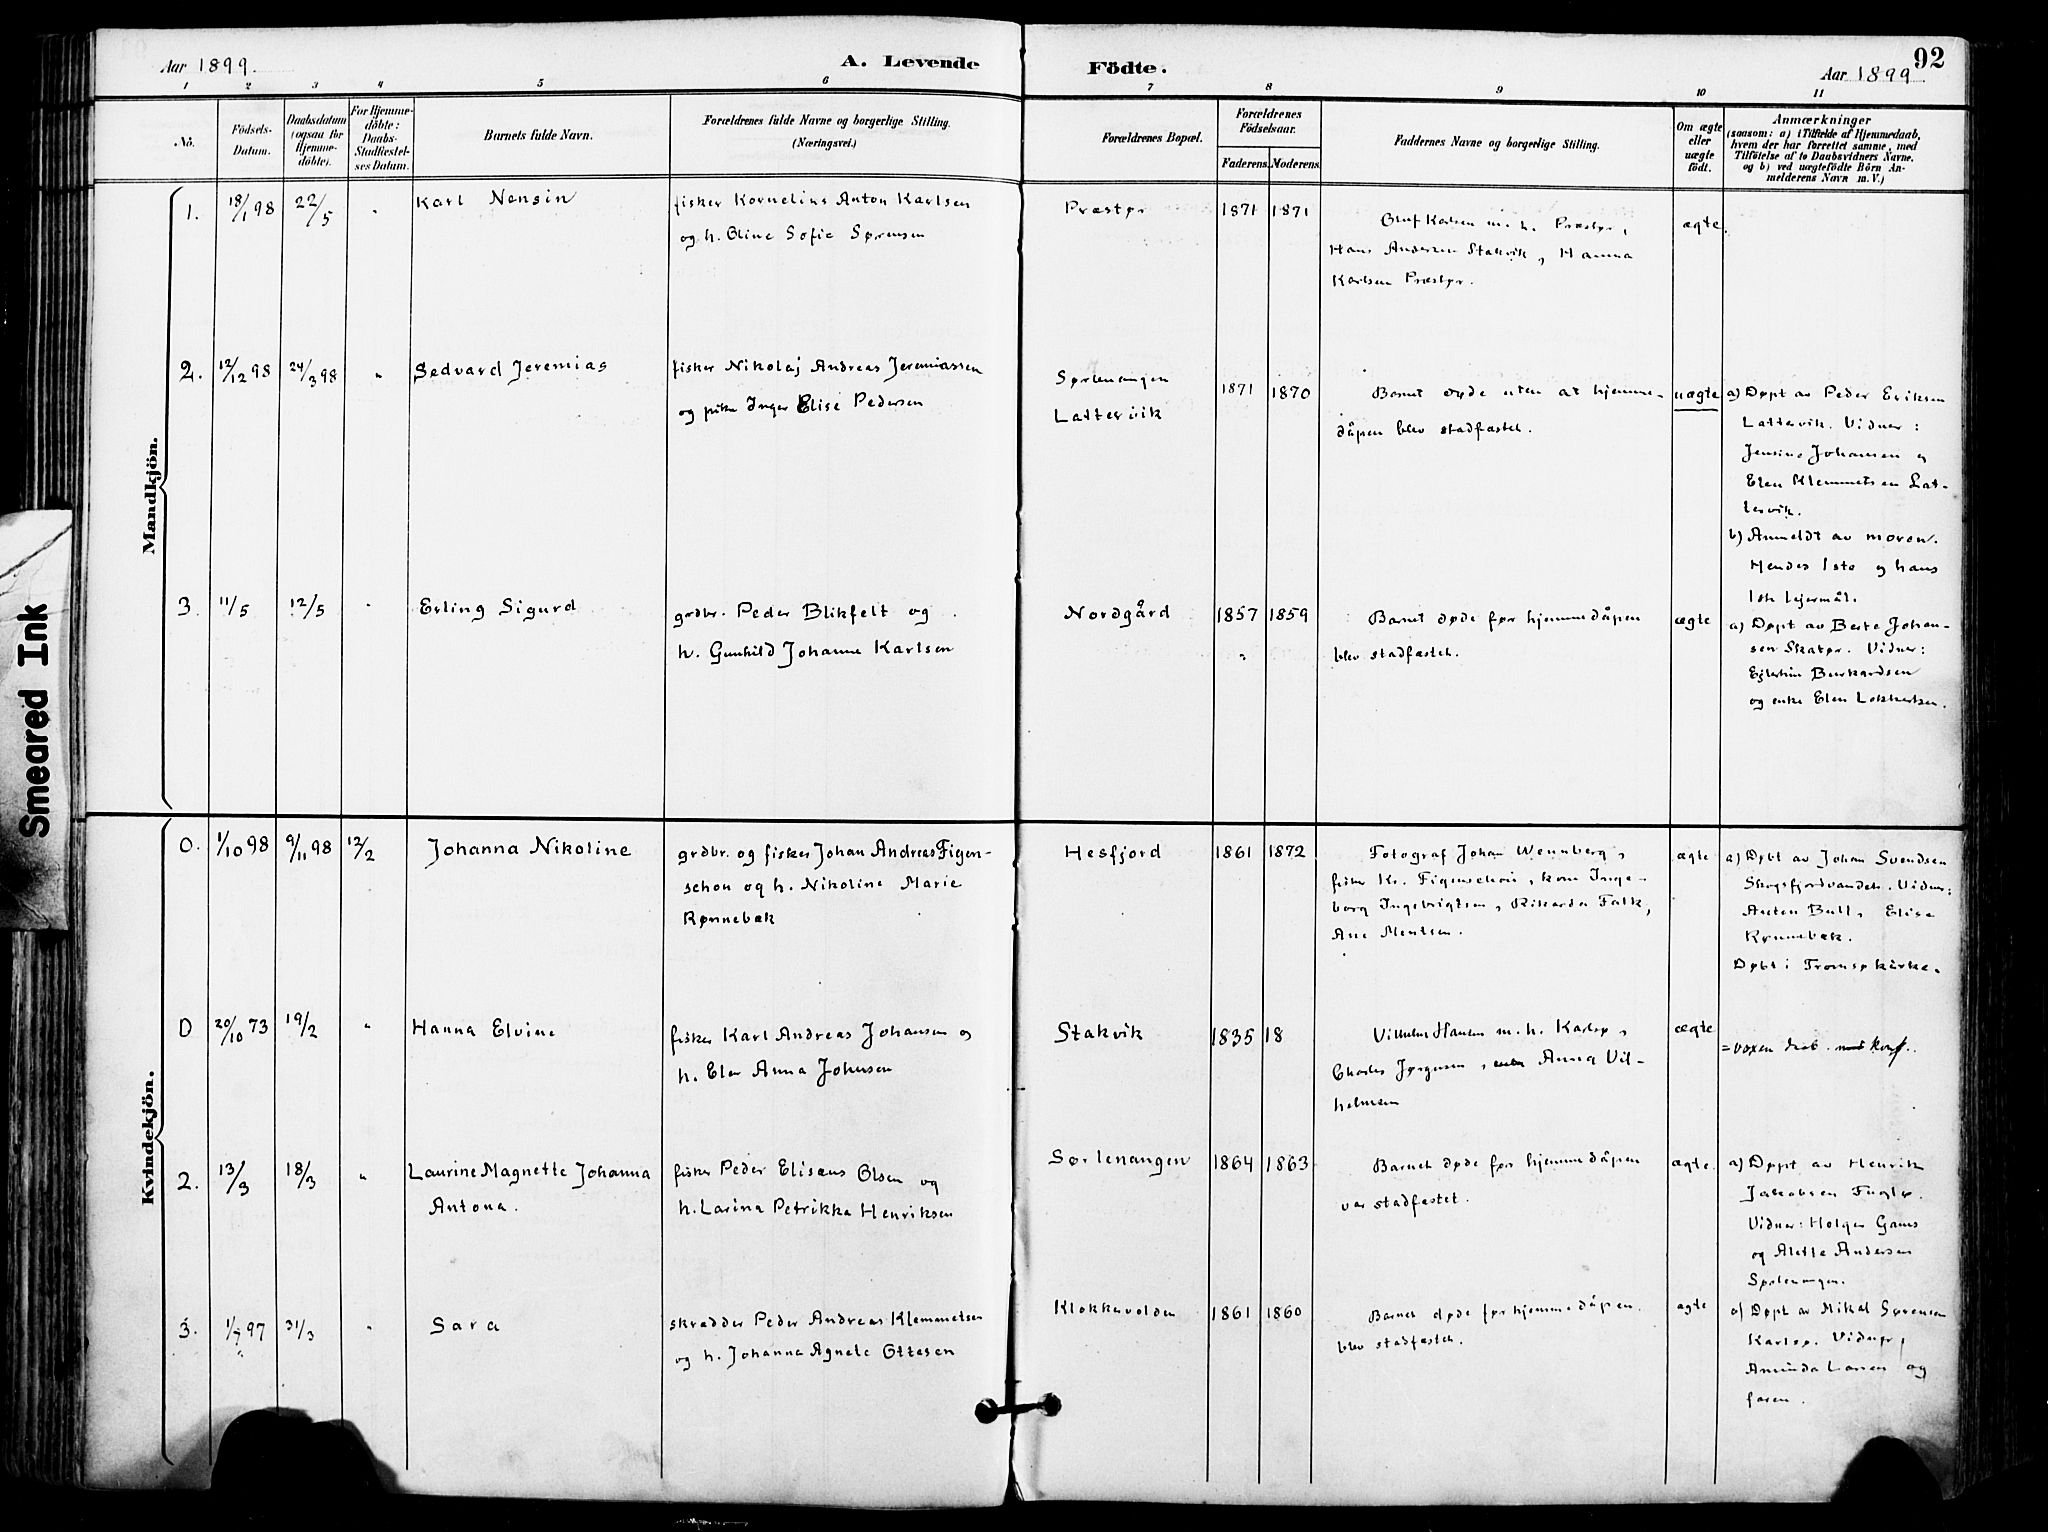 Aar 1899.
A. Levende
Födte.
Aar 1899
92
1 2 3 4 5 6 7 8 9 10 11
Nö.
Födsels-
Datum.
Daabsdatum
(ogsaa för
Hjemme-
döbte).
For Hjemme-
döbte:
Daabs-
Stadfæstel-
ses Datum.
Barnets fulde Navn.
Forældrenes fulde Navne og borgerlige Stilling.
(Næringsvei.)
Forældrenes Bopæl.
Forældrenes
Födselsaar.
Faderens.
Moderens.
Faddernes Navne og borgerlige Stilling.
Om ægte
eller
uægte
födt.
Anmærkninger
(saasom: a) i Tilfælde af Hjemmedaab,
hvem der har forrettet samme, med
Tilföielse af to Daabsvidners Navne,
og b) ved uægtefödte Börn An-
melderens Navn m.V.)
Mandkjön.
1.
18/1 98
22/5
"
Karl Nensin
fisker Kornelius Anton Karlsen
og h. Oline Sofie Sørensen
Præstør
1871
1871
Oluf Karlsen m. h. Præstør,
Hans Andersen Stakvik, Hanna
Karlsen Præstør.
ægte.
2.
12/12 98
24/3 98
"
Sedvard Jeremias
fisker Nikolaj Andreas Jeremiassen
og pike Inger Elise Pedersen
Sørlenangen
Lattervik
1871
1870
Barnet døde uten at hjemme-
dåpen blev stadfæstet.
uægte
a) Døpt av Peder Eriksen
Lattervik. Vidner:
Jensine Johansen og
Elen Klemmetsen Lat-
tervik.
b) Anmeldt av moren.
Hendes 1ste og hans
1ste lejermål.
3.
11/5
12/5
"
Erling Sigurd
grdbr. Peder Blikfelt og
h. Gunhild Johanne Karlsen
Nordgård
1857
1859
"
Barnet døde før hjemmedåpen
blev stadfæstet.
ægte
a) Døpt av Berte Johan-
sen Skatør. Vidner:
Burkardsen
og enke Elen Lokkertsen.
Kvindekjön.
0.
1/10 98
9/11 98
12/2
Johanna Nikoline
grdbr. og fisker Johan Andreas Figen-
schou og h. Nikoline Marie
Rønnebæk
Hesfjord
1861
1872
Fotograf Johan Wennberg,
fisker Kr. Figenschou, kone Inge-
borg Ingebrigtsen, Rikarda Falk,
Ane Mentsen.
ægte
a) Døbt av Johan Svendsen
Skogsfjordvandet. Vidner:
Anton Bull, Elise
Rønnebæk.
Døbt i Tromsø kirke.
0
20/10 73
19/2
"
Hanna Elvine
fisker Karl Andreas Johansen og
h. Elen Anna Johnsen
Stakvik
1835
18
Vilhelm Hansen m. h. Karlsø,
Charles Jørgensen, Anna Vil-
helmsen
ægte
= voxen dåb. konf.
2.
13/3
18/3
"
Laurine Magnette Johanna
Antona.
fisker Peder Elisæus Olsen og
h. Larina Petrikka Henriksen
Sørlenangen
1864
1863
Barnet døde før hjemmedåpen
var stadfæstet.
ægte.
a) Døpt av Henrik
Jakobsen Fuglø.
Vidner: Holger Gams
og Alette Andersen
Sørlenangen.
3.
97
31/3
"
Sara
skrædder Peder Andreas Klemmetsen
og h. Johanna Agnele Ottesen
Klokkevolden
1861
1860
Barnet døde før hjemmedåpen
blev stadfæstet.
ægte
a) Døpt av Mikal Sørensen
Karlsø. Vidner,
Aminda Larsen og
faren.
Smeared Ink